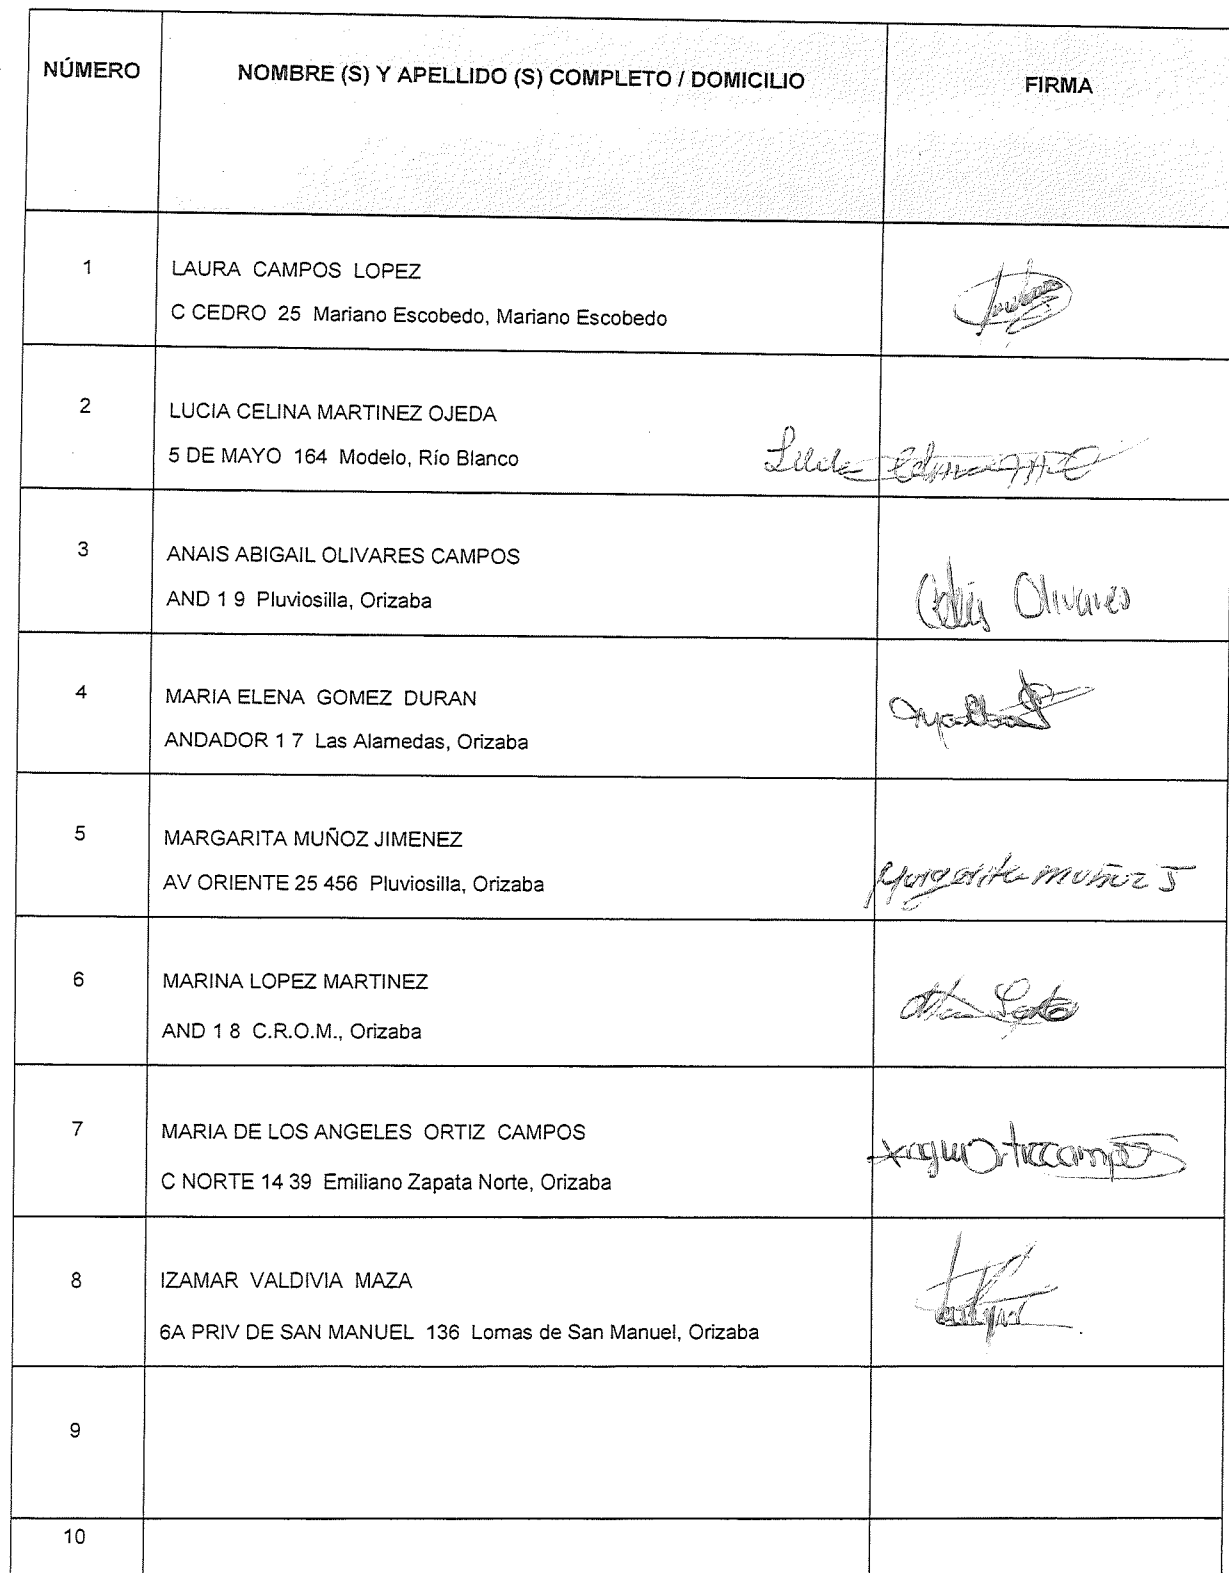 NÚMERO
NOMBRE (S) Y APELLIDO (S) COMPLETO / DOMICILIO
FIRMA
1
LAURA CAMPOS LOPEZ
C CEDRO 25 Mariano Escobedo, Mariano Escobedo
2
LUCIA CELINA MARTINEZ OJEDA
5 DE MAYO 164 Modelo, Río Blanco
3
ANAIS ABIGAIL OLIVARES CAMPOS
AND 1 9 Pluviosilla, Orizaba
Olivares
4
MARIA ELENA GOMEZ DURAN
ANDADOR 1 7 Las Alamedas, Orizaba
5
MARGARITA MUÑOZ JIMENEZ
AV ORIENTE 25 456 Pluviosilla, Orizaba
Margarita muñoz J
6
MARINA LOPEZ MARTINEZ
AND 1 8 C.R.O.M., Orizaba
7
MARIA DE LOS ANGELES ORTIZ CAMPOS
C NORTE 14 39 Emiliano Zapata Norte, Orizaba
8
IZAMAR VALDIVIA MAZA
6A PRIV DE SAN MANUEL 136 Lomas de San Manuel, Orizaba
9
10